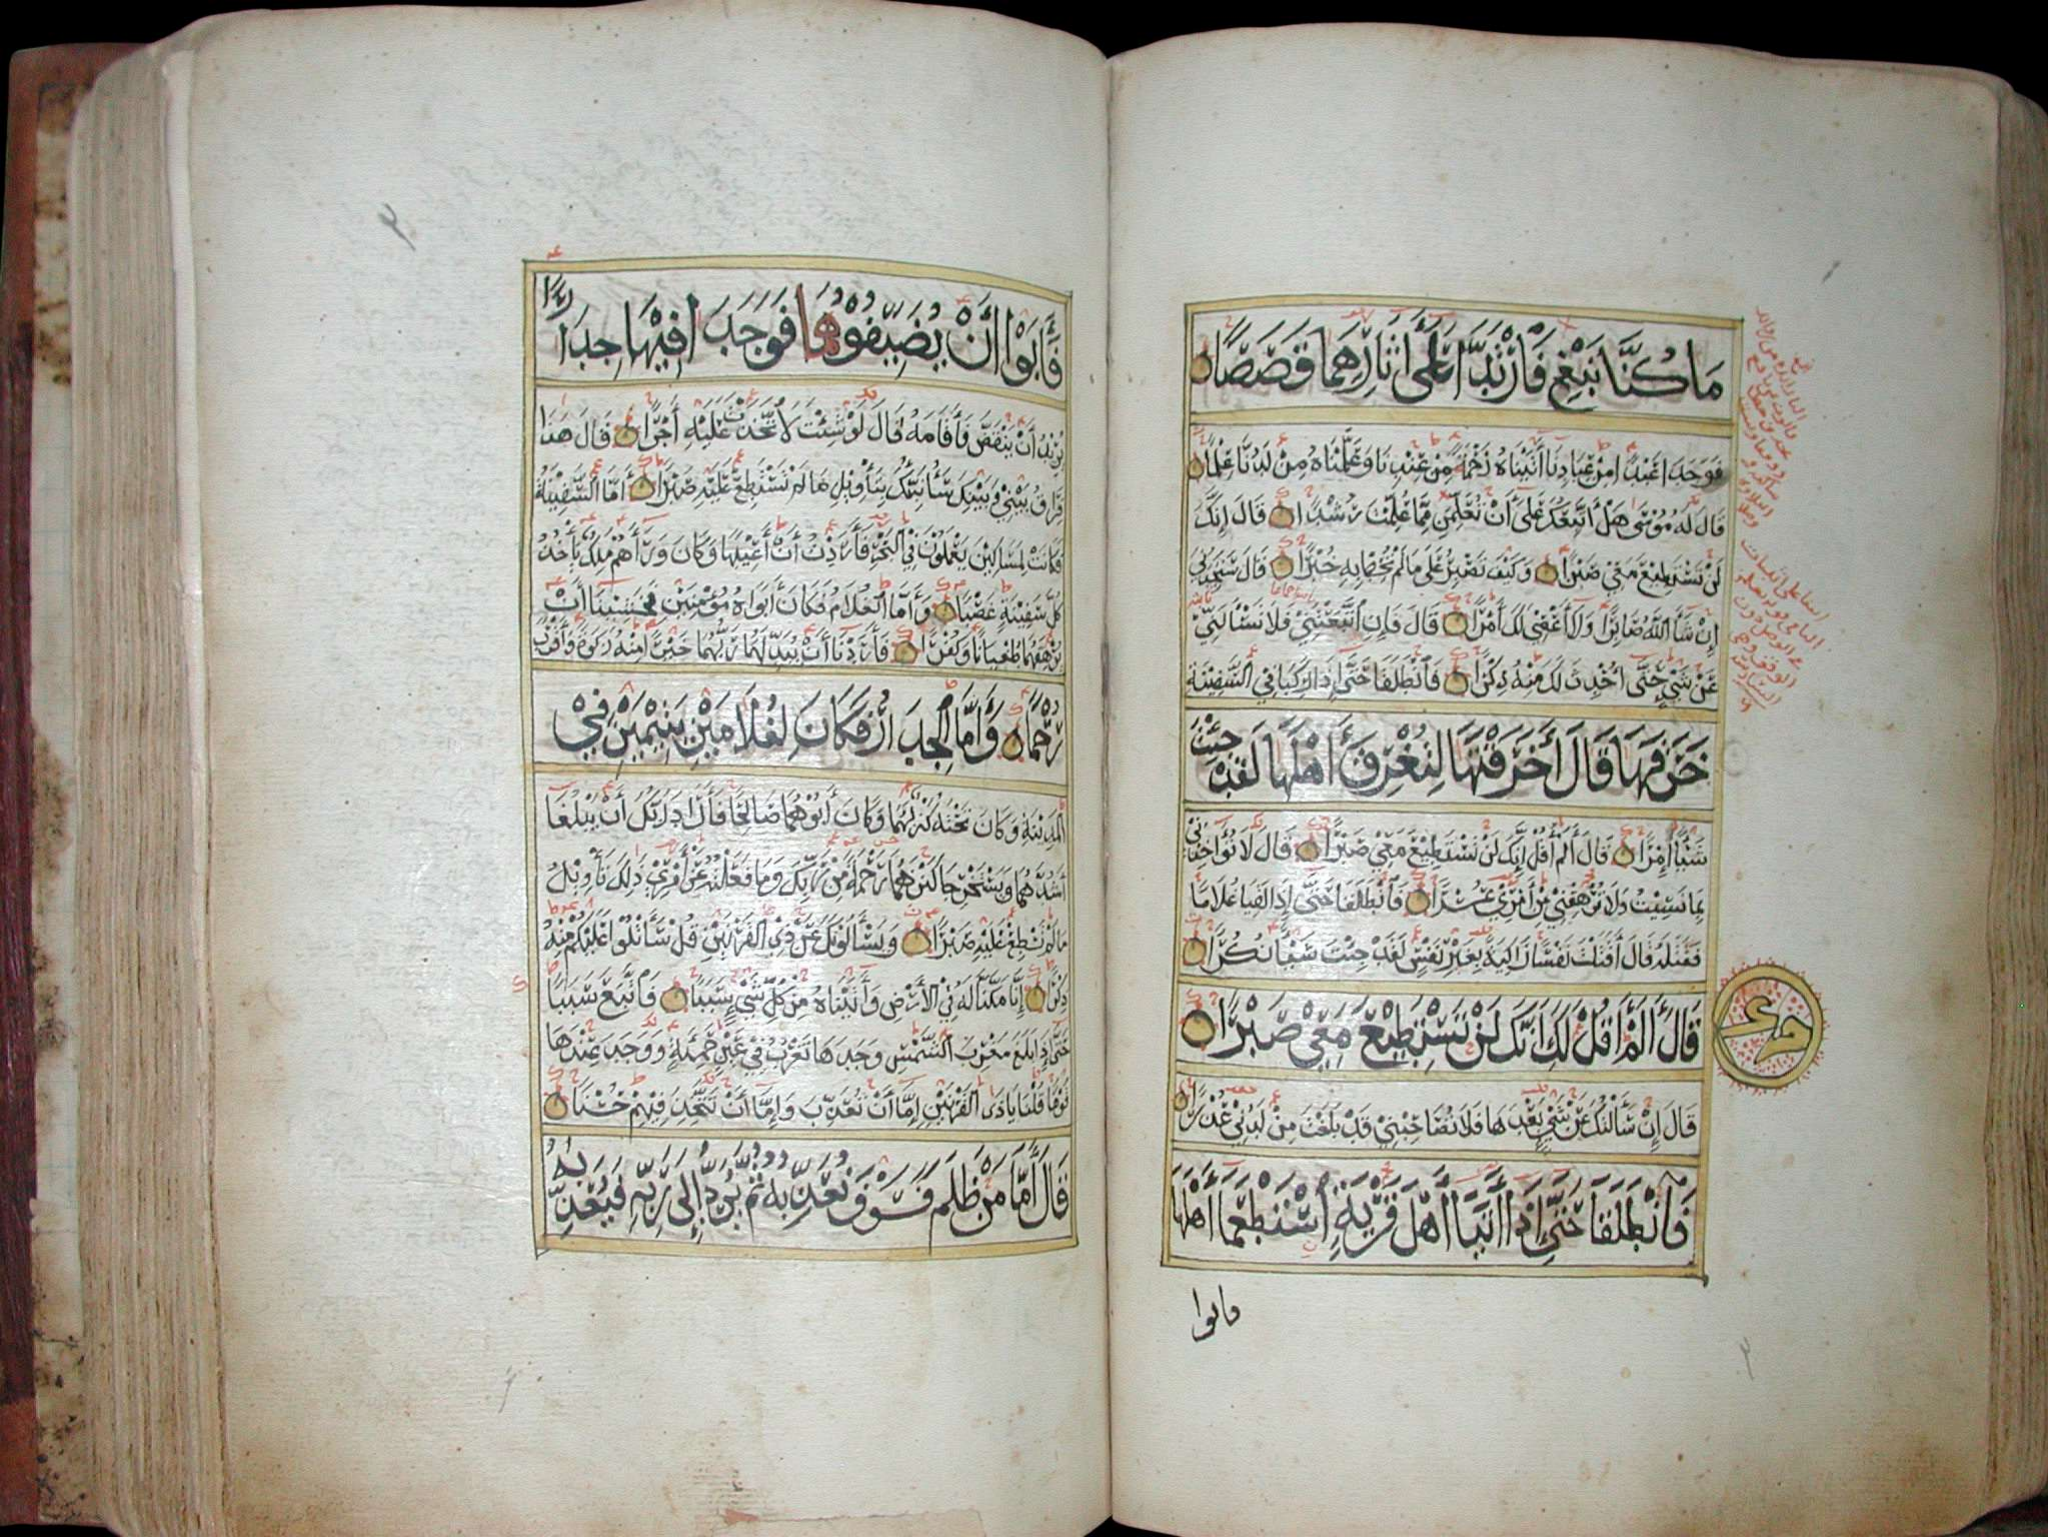 مَا كُنَّا نَبْغِ فَارْتَدَّا عَلَى آثَارِهِمَا قَصَصًا
فَوَجَدَا عَبْدًا مِنْ عِبَادِنَا آتَيْنَاهُ رَحْمَةً مِنْ عِنْدِنَا وَعَلَّمْنَاهُ مِنْ لَدُنَّا عِلْمًا
قَالَ لَهُ مُوسَى هَلْ أَتَّبِعُكَ عَلَى أَنْ تُعَلِّمَنِ مِمَّا عُلِّمْتَ رُشْدًا قَالَ إِنَّكَ
لَنْ تَسْتَطِيعَ مَعِيَ صَبْرًا وَكَيْفَ تَصْبِرُ عَلَى مَا لَمْ تُحِطْ بِهِ خُبْرًا قَالَ سَتَجِدُنِي
إِنْ شَاءَ اللَّهُ صَابِرًا وَلَا أَعْصِي لَكَ أَمْرًا قَالَ فَإِنِ اتَّبَعْتَنِي فَلَا تَسْأَلْنِي
عَنْ شَيْءٍ حَتَّى أُحْدِثَ لَكَ مِنْهُ ذِكْرًا فَانْطَلَقَا حَتَّى إِذَا رَكِبَا فِي السَّفِينَةِ
خَرَقَهَا قَالَ أَخَرَقْتَهَا لِتُغْرِقَ أَهْلَهَا لَقَدْ جِئْتَ
شَيْئًا إِمْرًا قَالَ أَلَمْ أَقُلْ إِنَّكَ لَنْ تَسْتَطِيعَ مَعِيَ صَبْرًا قَالَ لَا تُؤَاخِذْنِي
بِمَا نَسِيتُ وَلَا تُرْهِقْنِي مِنْ أَمْرِي عُسْرًا فَانْطَلَقَا حَتَّى إِذَا لَقِيَا غُلَامًا
فَقَتَلَهُ قَالَ أَقَتَلْتَ نَفْسًا زَاكِيَةً بِغَيْرِ نَفْسٍ لَقَدْ جِئْتَ شَيْئًا نُكْرًا
قَالَ أَلَمْ أَقُلْ لَكَ إِنَّكَ لَنْ تَسْتَطِيعَ مَعِيَ صَبْرًا
جزء
قَالَ إِنْ سَأَلْتُكَ عَنْ شَيْءٍ بَعْدَهَا فَلَا تُصَاحِبْنِي قَدْ بَلَغْتَ مِنْ لَدُنِّي عُذْرًا
فَانْطَلَقَا حَتَّى إِذَا أَتَيَا أَهْلَ قَرْيَةٍ اسْتَطْعَمَا أَهْلَهَا
فابوا
فَأَبَوْا أَنْ يُضَيِّفُوهُمَا فَوَجَدَا فِيهَا جِدَارًا
يُرِيدُ أَنْ يَنْقَضَّ فَأَقَامَهُ قَالَ لَوْ شِئْتَ لَاتَّخَذْتَ عَلَيْهِ أَجْرًا قَالَ هَذَا
فِرَاقُ بَيْنِي وَبَيْنِكَ سَأُنَبِّئُكَ بِتَأْوِيلِ مَا لَمْ تَسْتَطِعْ عَلَيْهِ صَبْرًا أَمَّا السَّفِينَةُ
فَكَانَتْ لِمَسَاكِينَ يَعْمَلُونَ فِي الْبَحْرِ فَأَرَدْتُ أَنْ أَعِيبَهَا وَكَانَ وَرَاءَهُمْ مَلِكٌ يَأْخُذُ
كُلَّ سَفِينَةٍ غَصْبًا وَأَمَّا الْغُلَامُ فَكَانَ أَبَوَاهُ مُؤْمِنَيْنِ فَخَشِينَا أَنْ
يُرْهِقَهُمَا طُغْيَانًا وَكُفْرًا فَأَرَدْنَا أَنْ يُبَدِّلَهُمَا رَبُّهُمَا خَيْرًا مِنْهُ زَكَوةً وَأَقْرَبَ
رُحْمًا وَأَمَّا الْجِدَارُ فَكَانَ لِغُلَامَيْنِ يَتِيمَيْنِ فِي
الْمَدِينَةِ وَكَانَ تَحْتَهُ كَنْزٌ لَهُمَا وَكَانَ أَبُوهُمَا صَالِحًا فَأَرَادَ رَبُّكَ أَنْ يَبْلُغَا
أَشُدَّهُمَا وَيَسْتَخْرِجَا كَنْزَهُمَا رَحْمَةً مِنْ رَبِّكَ وَمَا فَعَلْتُهُ عَنْ أَمْرِي ذَلِكَ تَأْوِيلُ
مَا لَمْ تَسْطِعْ عَلَيْهِ صَبْرًا وَيَسْأَلُونَكَ عَنْ ذِي الْقَرْنَيْنِ قُلْ سَأَتْلُوا عَلَيْكُمْ مِنْهُ
ذِكْرًا إِنَّا مَكَّنَّا لَهُ فِي الْأَرْضِ وَآتَيْنَاهُ مِنْ كُلِّ شَيْءٍ سَبَبًا فَاتَّبَعَ سَبَبًا
حَتَّى إِذَا بَلَغَ مَغْرِبَ الشَّمْسِ وَجَدَهَا تَغْرُبُ فِي عَيْنٍ حَمِئَةٍ وَوَجَدَ عِنْدَهَا
قَوْمًا قُلْنَا يَا ذَا الْقَرْنَيْنِ إِمَّا أَنْ تُعَذِّبَ وَإِمَّا أَنْ تَتَّخِذَ فِيهِمْ حُسْنًا
قَالَ أَمَّا مَنْ ظَلَمَ فَسَوْفَ نُعَذِّبُهُ ثُمَّ يُرَدُّ إِلَى رَبِّهِ فَيُعَذِّبُهُ